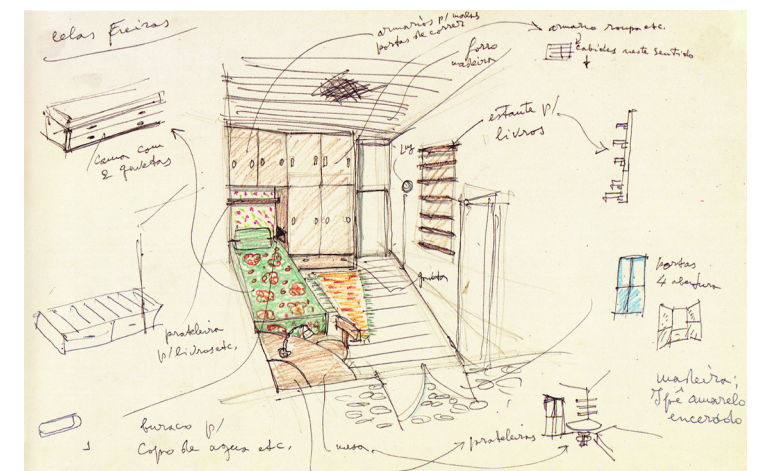 celas Freiras
armarios p/ malas
portas de correr
armario roupa etc.
cabides neste sentido
forro
madeira
estante p/
livros
Luz
cama com
2 gavetas
gavetas
prateleira
p/ livros etc.
portas
4 abertura
madeira:
Ipê amarelo
encerado
buraco p/
Copo de agua etc.
mesa
prateleiras